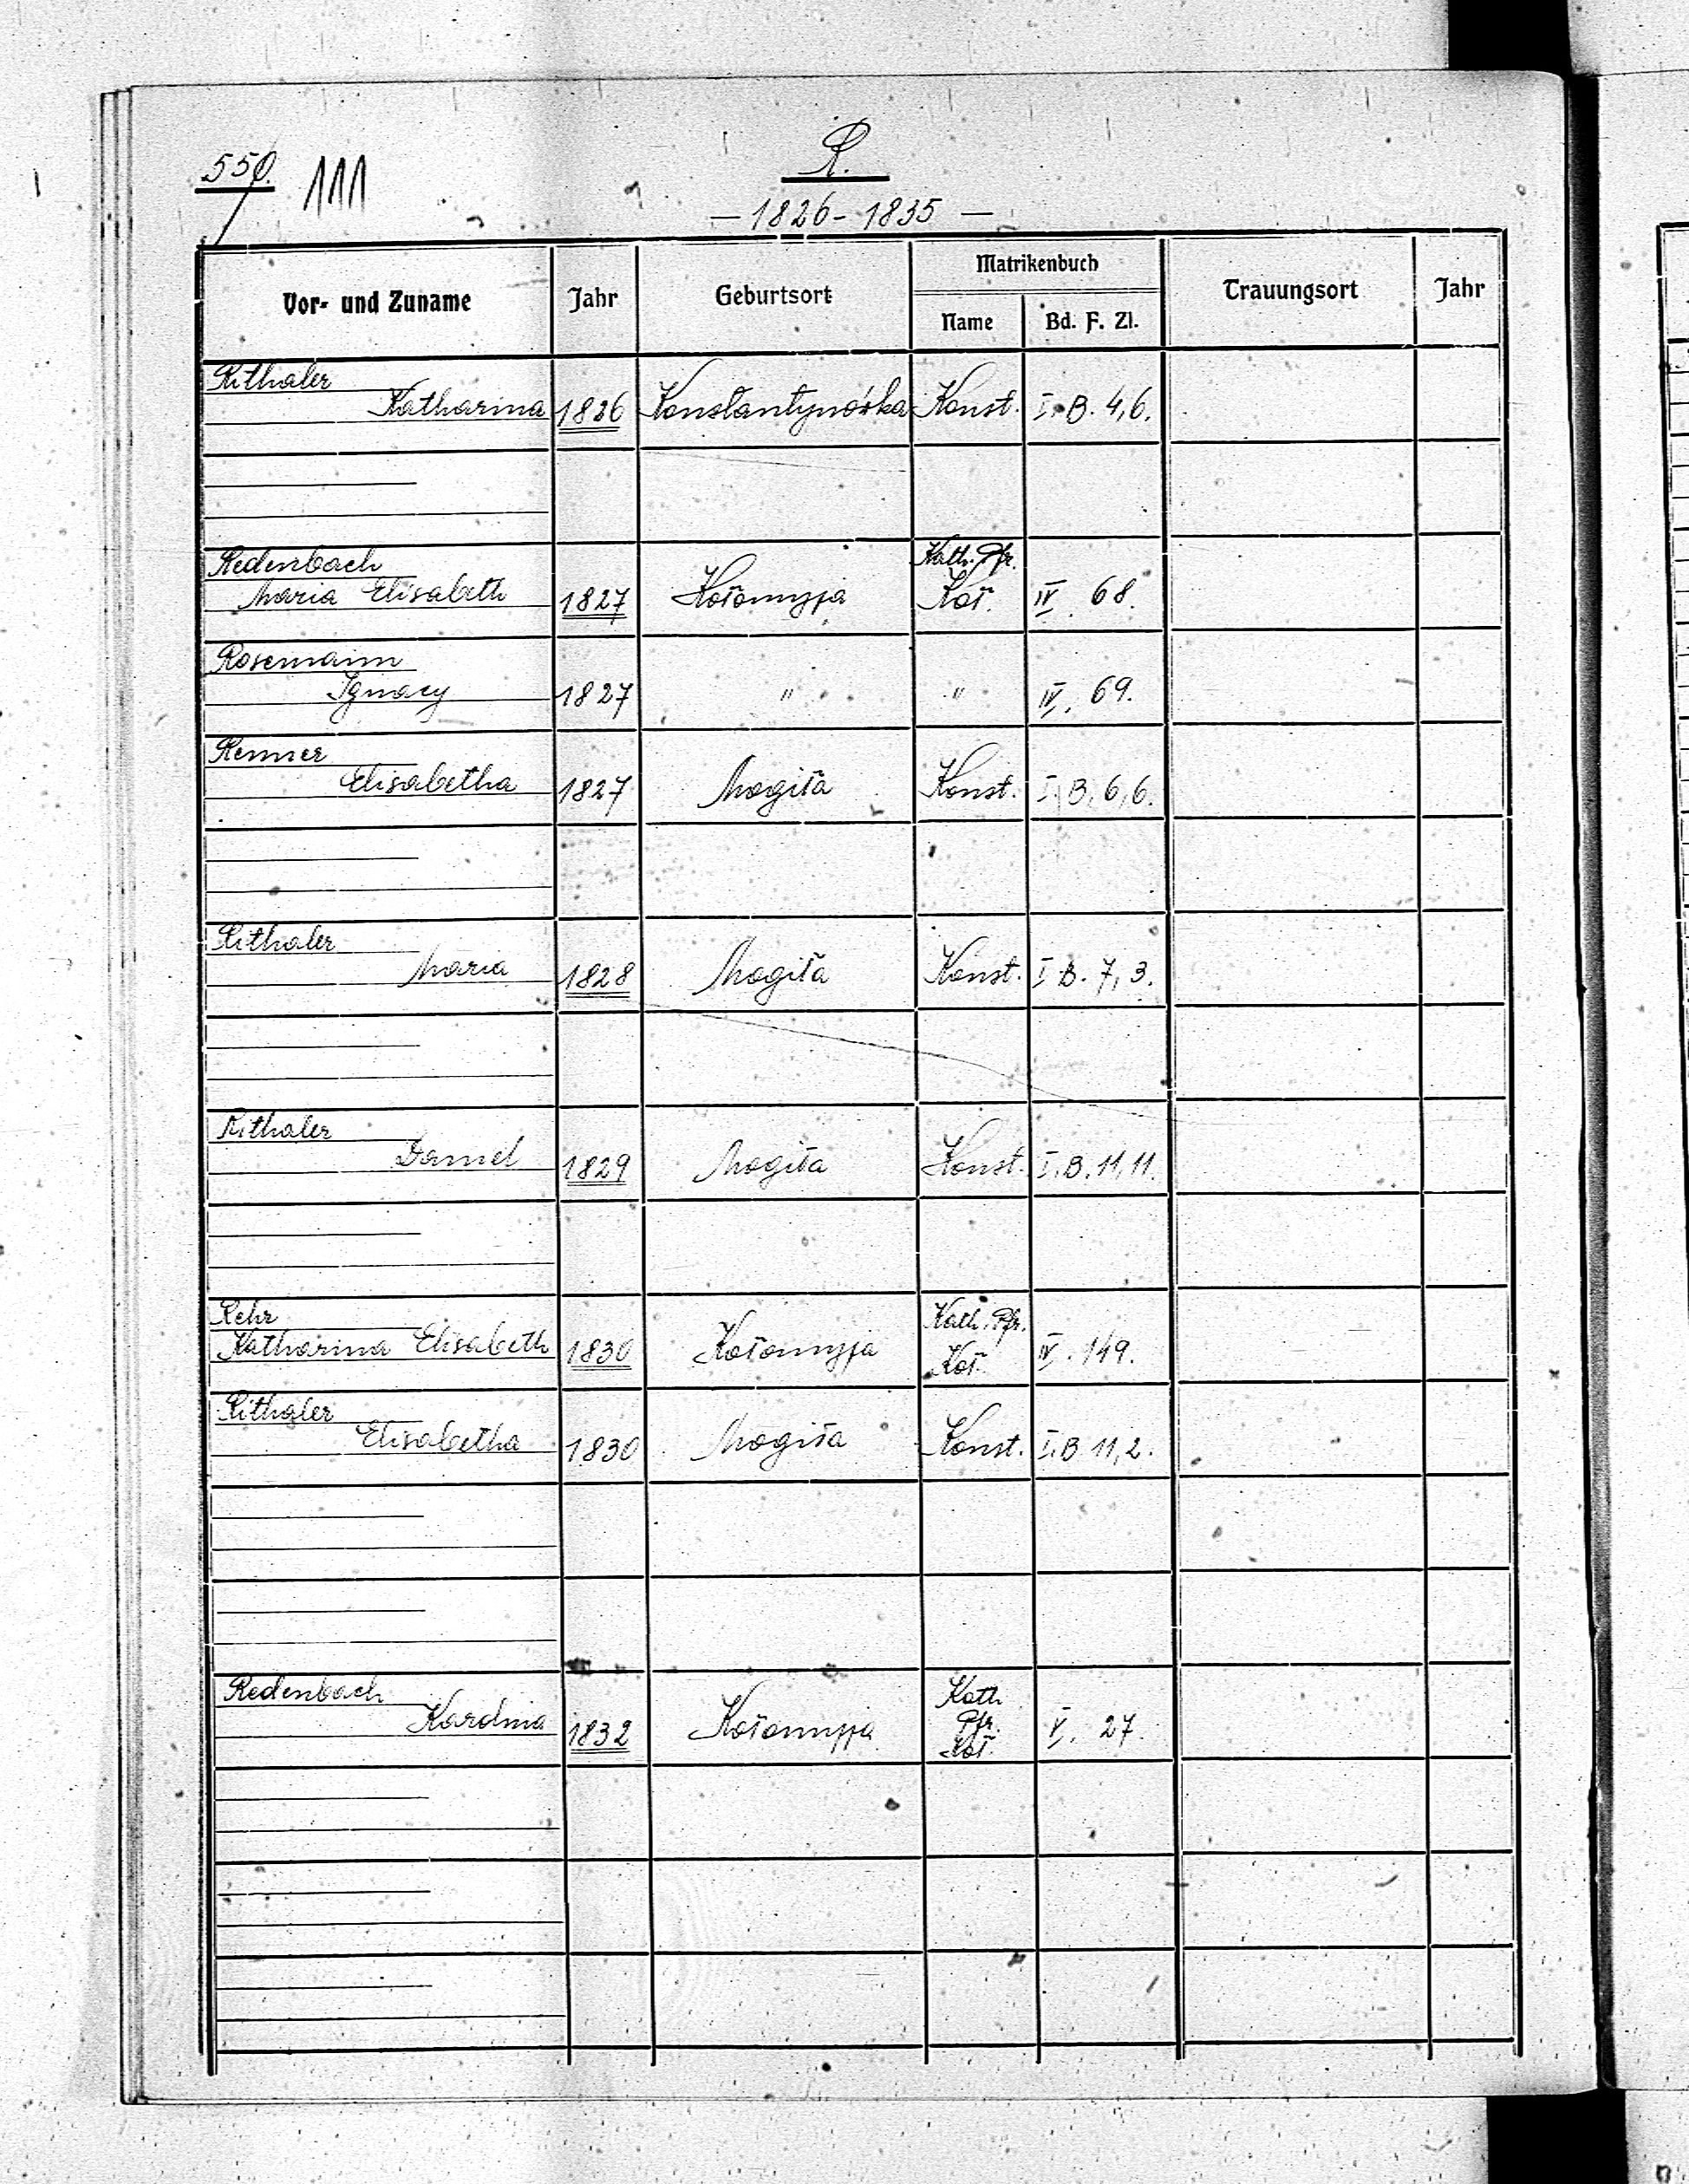 550. 111
R.
— 1826 - 1835 —
Vor- und Zuname Jahr Geburtsort Matrikenbuch Trauungsort Jahr
Name Bd. F. Zl.
Rithaler
Katharina 1826 Konstantynówka Konst. I. B. 4,6.
Redenbach Kath. Pfr.
Maria Elisabeth 1827 Kołomyja Koł. IV. 68.
Rosemann
Ignacy 1827 " " IV. 69.
Renner
Elisabetha 1827 Mogiła Konst. I. B. 6,6.
Rithaler
Maria 1828 Mogiła Konst. I. B. 7, 3.
Rithaler
Daniel 1829 Mogiła Konst. I. B. 11, 11.
Rehr Kath. Pfr.
Katharina Elisabeth 1830 Kołomyja Koł. IV. 149.
Rithaler
Elisabetha 1830 Mogiła Konst. I. B. 11, 2.
Redenbach Kath.
Karolina 1832 Kołomyja Pfr. V. 27.
Koł.